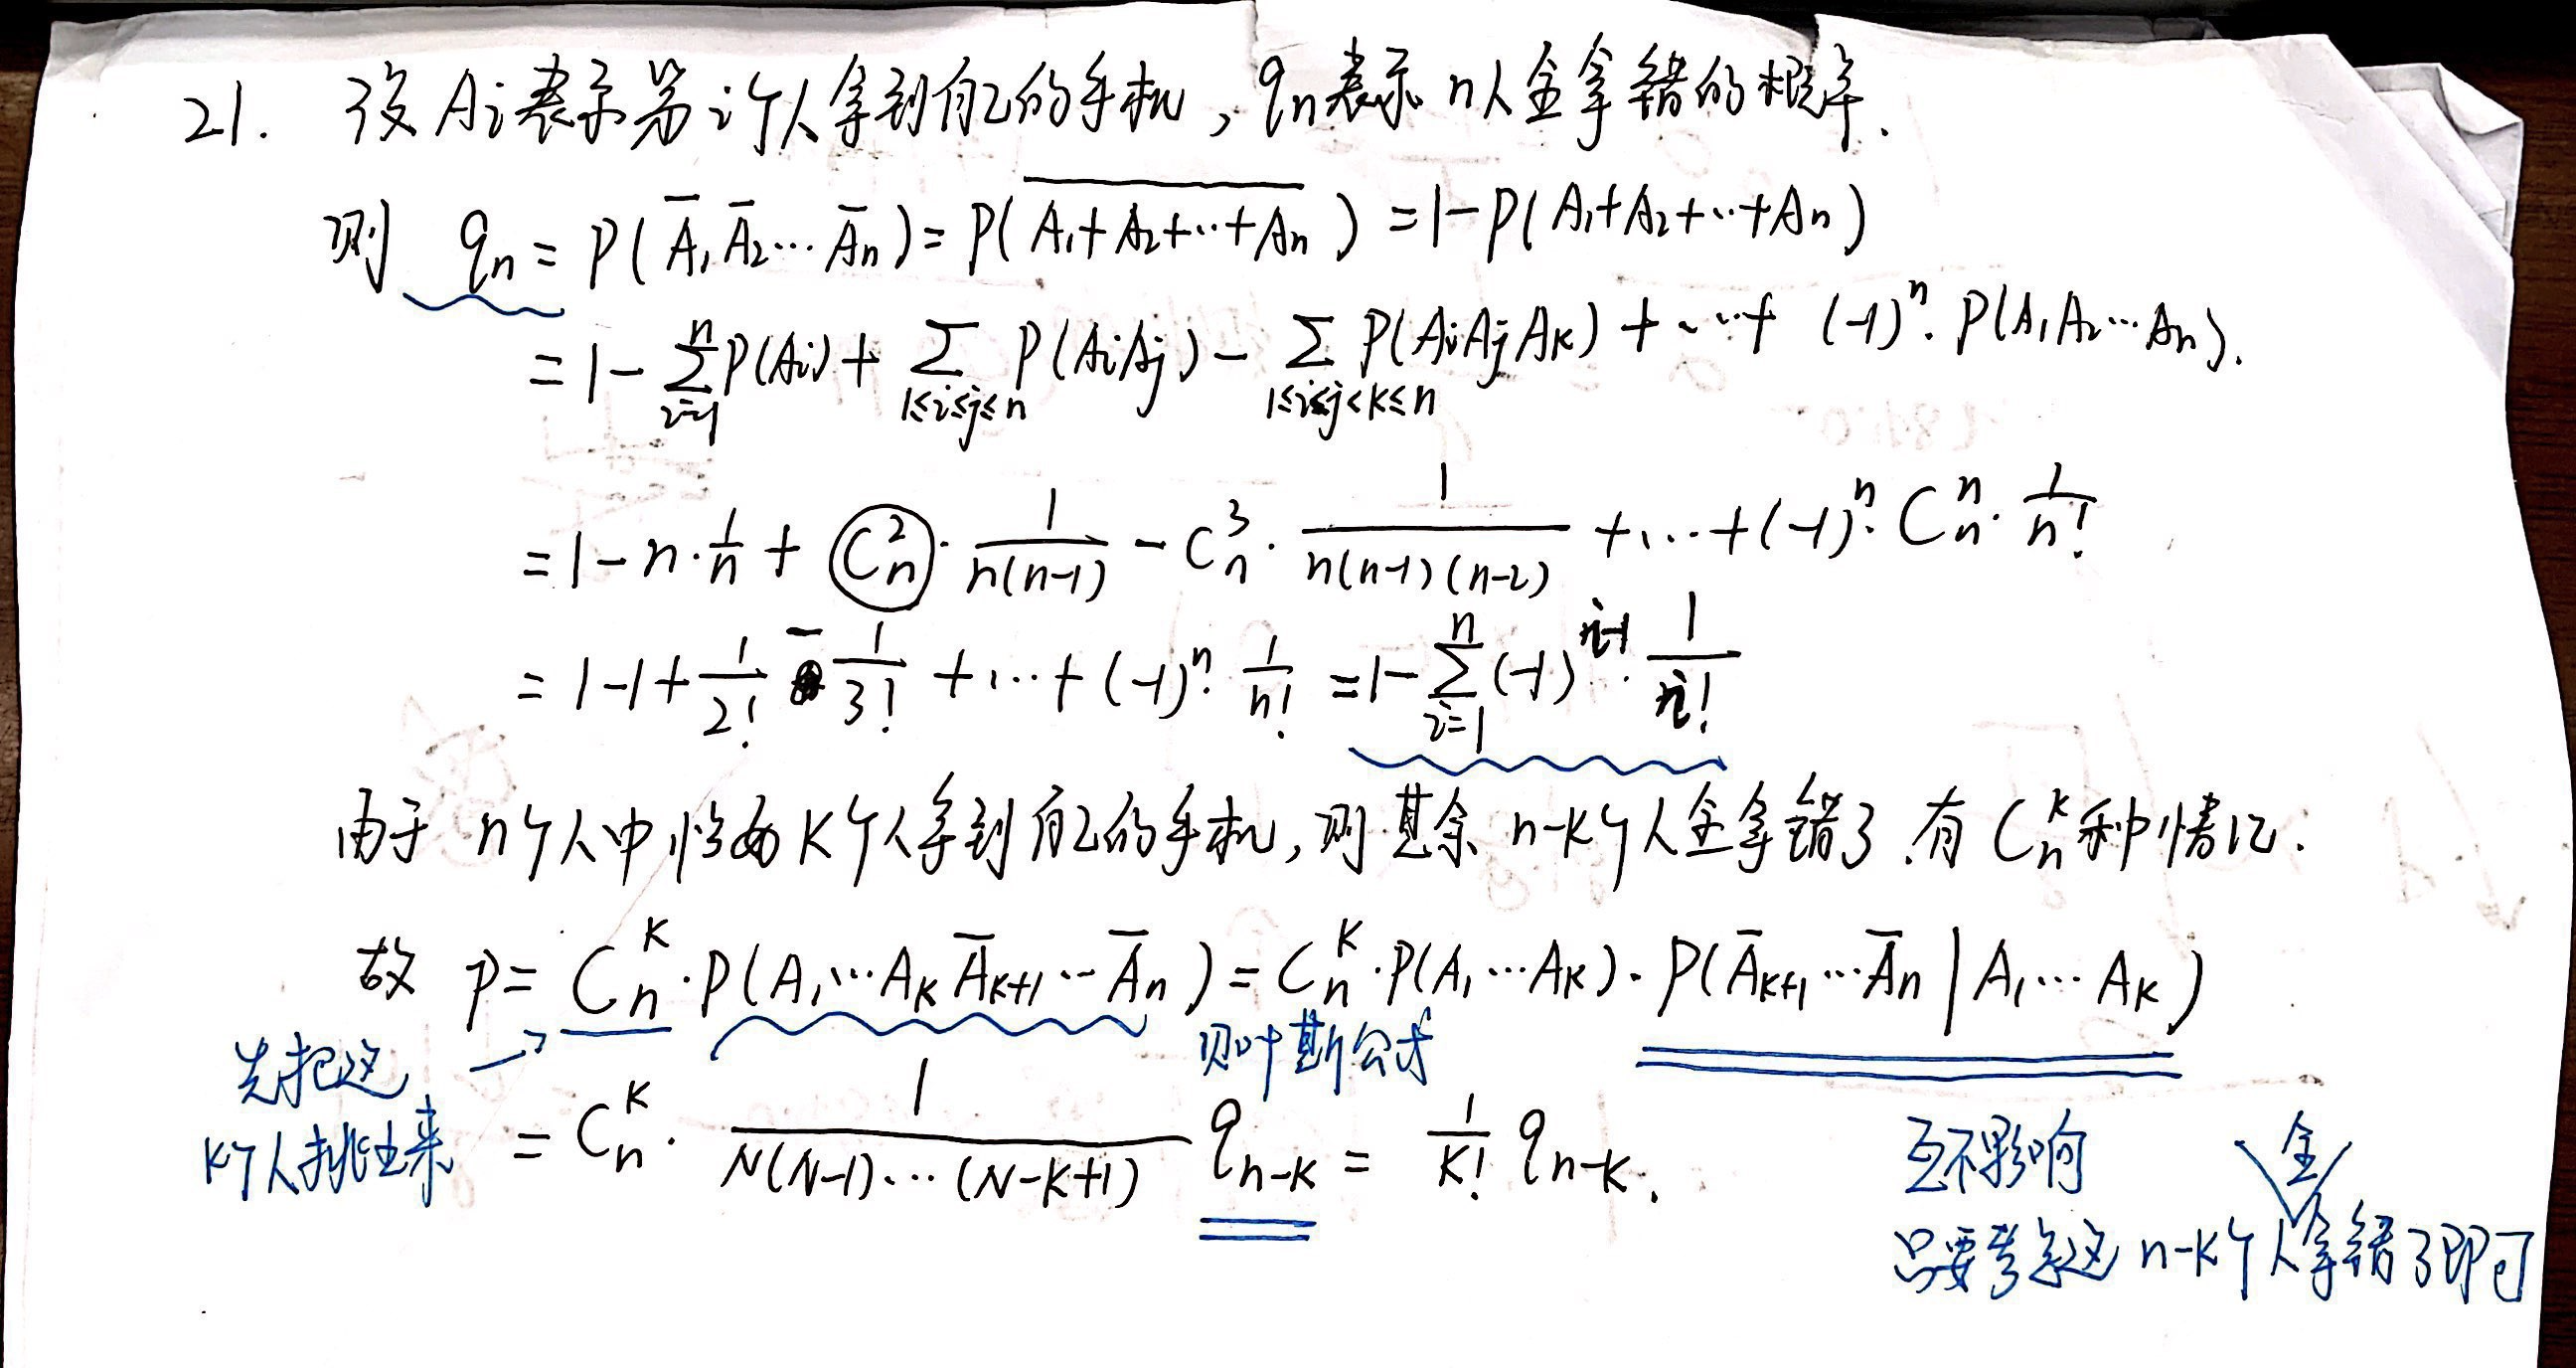 21. 设 Ai 表示第 i 个人拿到自己的手机，qn 表示 n 人全拿错的概率.
则 qn = P(A̅₁A̅₂…A̅n) = P(\overline{A₁+A₂+…+An}) = 1-P(A₁+A₂+…+An)
= 1 - \sum_{i=1}^{n} P(Ai) + \sum_{1≤i≤j≤n} P(AiAj) - \sum_{1≤i≤j<k≤n} P(AiAjAk) + … + (-1)^n · P(A₁A₂…An).
= 1 - n·\frac{1}{n} + C_n^2 · \frac{1}{n(n-1)} - C_n^3 · \frac{1}{n(n-1)(n-2)} + … + (-1)^n · C_n^n · \frac{1}{n!}
= 1 - 1 + \frac{1}{2!} - \frac{1}{3!} + … + (-1)^n · \frac{1}{n!} = 1 - \sum_{i=1}^{n} (-1)^{i-1} · \frac{1}{i!}
由于 n个人中恰好 K个人拿到自己的手机，则其余 n-k个人全拿错了. 有 C_n^k 种情况.
故 P = C_n^k · P(A₁…A_k A̅_{k+1}…A̅n) = C_n^k · P(A₁…A_k) · P(A̅_{k+1}…A̅n | A₁…A_k)
先把这
K个人挑出来
贝叶斯公式
= C_n^k · \frac{1}{N(N-1)…(N-k+1)} q_{n-k} = \frac{1}{k!} q_{n-k}.
互不影响
全
只要考虑这 n-k个人拿错了即可